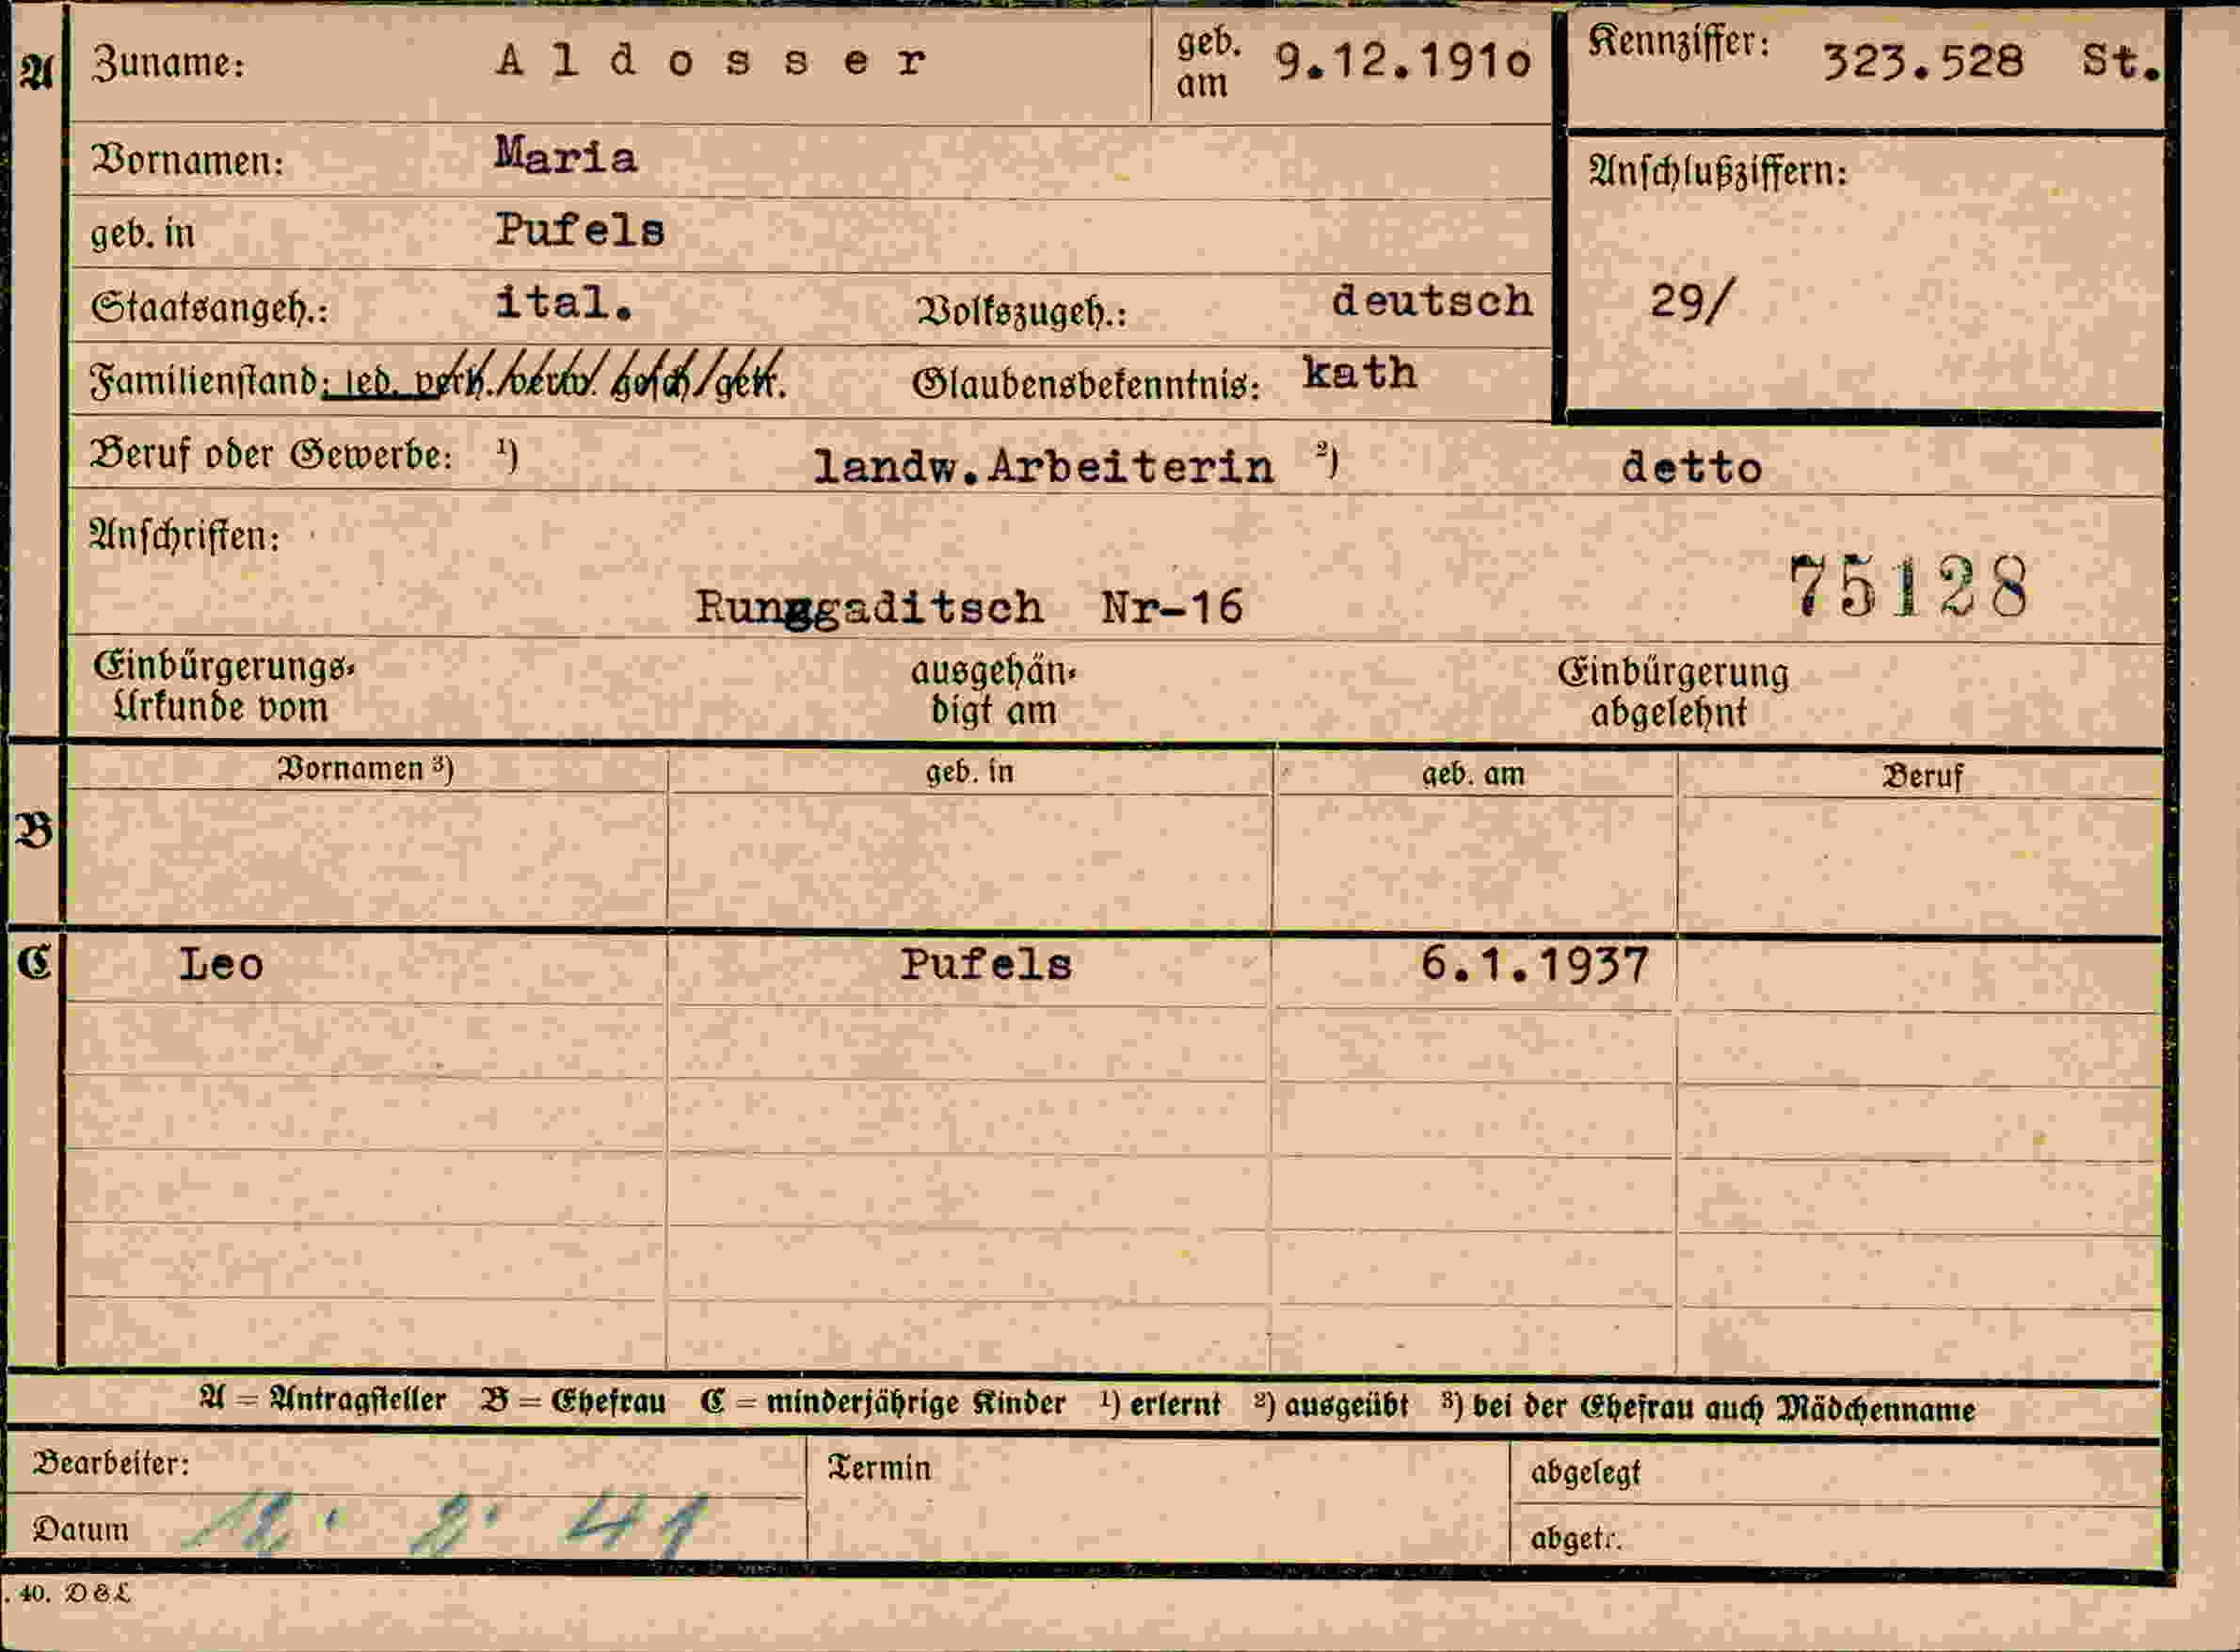 A Zuname: Aldosser geb. am 9.12.191o Kennziffer: 323.528 St.
Vornamen: Maria Anschlußziffern:
geb. in Pufels
Staatsangeh.: ital. Volkszugeh.: deutsch 29/
Familienstand: led. verh. verw. gesch. getr. Glaubensbekenntnis: kath
Beruf oder Gewerbe: ¹) landw.Arbeiterin ²) detto
Anschriften:
Runggaditsch Nr-16 75128
Einbürgerungs- ausgehän- Einbürgerung
Urkunde vom digt am abgelehnt
Vornamen ³) geb. in geb. am Beruf
B
C Leo Pufels 6.1.1937
A = Antragsteller B = Ehefrau C = minderjährige Kinder ¹) erlernt ²) ausgeübt ³) bei der Ehefrau auch Mädchenname
Bearbeiter: Termin abgelegt
Datum 12. 2. 41 abgetr.
. 40. D&L